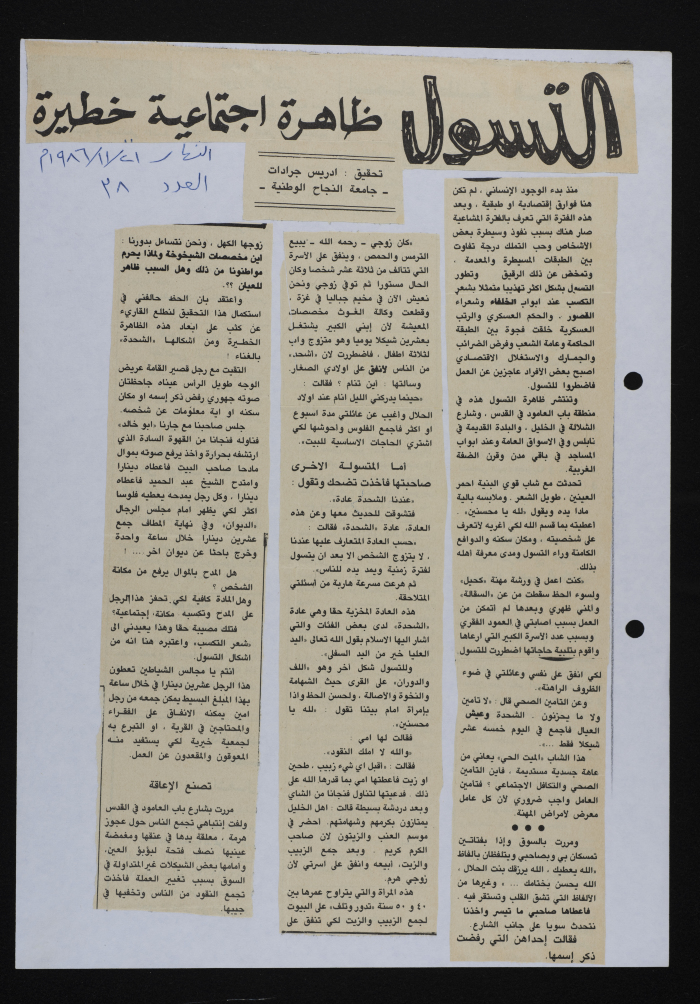 التسول ظاهرة اجتماعية خطيرة
النهار ٢١/١١/١٩٨٦م
العدد ٣٨
تحقيق : ادريس جرادات
ـ جامعة النجاح الوطنية ـ
منذ بدء الوجود الإنساني ، لم تكن
هنا فوارق إقتصادية او طبقية ، وبعد
هذه الفترة التي تعرف بالفترة المشاعية
صار هناك بسبب نفوذ وسيطرة بعض
الأشخاص وحب التملك درجة تفاوت
بين الطبقات المسيطرة والمعدمة ،
وتمخض عن ذلك الرقيق وتطور
التسول بشكل اكثر تهذيبا متمثلا بشعر
التكسب عند ابواب الخلفاء وشعراء
القصور ، والحكم العسكري والرتب
العسكرية خلقت فجوة بين الطبقة
الحاكمة وعامة الشعب وفرض الضرائب
والجمارك والاستغلال الاقتصادي
اصبح بعض الأفراد عاجزين عن العمل
فاضطروا للتسول.
وتنتشر ظاهرة التسول هذه في
منطقة باب العامود في القدس ، وشارع
الشلالة في الخليل ، والبلدة القديمة في
نابلس وفي الاسواق العامة وعند ابواب
المساجد في باقي مدن وقرن الضفة
الغربية.
تحدثت مع شاب قوي البنية احمر
العينين ، طويل الشعر . وملابسه بالية
مادا يده ويقول «لله يا محسنين» .
اعطيته بما قسم الله لكي اغريه لأتعرف
على شخصيته ، ومكان سكنه والدوافع
الكامنة وراء التسول ومدى معرفة أهله
بذلك.
«كنت اعمل في ورشة مهنة «كحيل»
ولسوء الحظ سقطت من عن «السقالة»
والمني ظهري وبعدها لم اتمكن من
العمل بسبب اصابتي في العمود الفقري
وبسبب عدد الأسرة الكبير التي ارعاها
واقوم بتلبية حاجاتها اضطررت للتسول
لكي انفق على نفسي وعائلتي في ضوء
الظروف الراهنة».
وعن التأمين الصحي قال : «لا تأمين
ولا ما يحزنون . الشحدة وعيش
العيال فأجمع في اليوم خمسه عشر
شيكلا فقط ...».
هذا الشاب «الميت الحي» يعاني من
عاهة جسدية مستديمة ، فاين التأمين
الصحي والتكافل الاجتماعي ؟ فتأمين
العامل واجب ضروري لأن كل عامل
معرض لأمراض المهنة.
● ● ●
ومررت بالسوق وإذا بفتاتين
تمسكان بي وبصاحبي ويتلفظان بألفاظ
«الله يعطيك ، الله يرزقك بنت الحلال ،
الله يحسن بختامك ... ، وغيرها من
الألفاظ التي تشق القلب وتستقر فيه .
فأعطاها صاحبي ما تيسر واخذنا
نتحدث سويا على جانب الشارع.
فقالت إحداهن التي رفضت
ذكر إسمها.
«كان زوجي ـ رحمه الله ـ يبيع
الترمس والحمص ، وينفق على الأسرة
التي تتألف من ثلاثة عشر شخصا وكان
الحال مستورا ثم توفي زوجي ونحن
نعيش الآن في مخيم جباليا في غزة ،
وقطعت وكالة الغوث مخصصات
المعيشة لأن إبني الكبير يشتغل
بعشرين شيكلا يوميا وهو متزوج واب
لثلاثة اطفال ، فاضطررت لان «اشحد»
من الناس لأنفق على اولادي الصغار.
وسألتها : اين تنام ؟ فقالت :
«حينما يدركني الليل انام عند اولاد
الحلال واغيب عن عائلتي مدة اسبوع
او اكثر فأجمع الفلوس واحوشها لكي
اشتري الحاجات الاساسية للبيت».
أما المتسولة الاخرى
صاحبتها فأخذت تضحك وتقول :
«عندنا الشحدة عادة».
فتشوقت للحديث معها وعن هذه
العادة، عادة «الشحدة» فقالت :
«حسب العادة المتعارف عليها عندنا
، لا يتزوج الشخص الا بعد ان يتسول
لفترة زمنية ويمد يده للناس».
ثم هرعت مسرعة هاربة من أسئلتي
المتلاحقة.
هذه العادة المخزية حقا وهي عادة
«الشحدة» لدى بعض الفئات والتي
اشار اليها الاسلام بقول الله تعالى «اليد
العليا خير من اليد السفلى».
وللتسول شكل آخر وهو «اللف
والدوران» على القرى حيث الشهامة
والنخوة والأصالة ، ولحسن الحظ واذا
بإمراة امام بيتنا تقول : «لله يا
محسنين».
فقالت لها امي :
«والله لا املك النقود».
فقالت : «اقبل اي شيء زبيب ، طحين
او زيت فأعطتها امي بما قدرها الله على
ذلك . فدعيتها لتناول فنجانا من الشاي
وبعد دردشة بسيطة قالت : اهل الخليل
يمتازون بكرمهم وشهامتهم. احضر في
موسم العنب والزيتون لان صاحب
الكرم كريم . وبعد جمع الزبيب
والزيت، ابيعه وانفق على اسرتي لأن
زوجي هرم.
هذه المرأة والتي يتراوح عمرها بين
٤٠ و ٥٠ سنة «تدور وتلف» على البيوت
لجمع الزبيب والزيت لكي تنفق على
زوجها الكهل ، ونحن نتساءل بدورنا :
اين مخصصات الشيخوخة ولماذا يحرم
مواطنونا من ذلك وهل السبب ظاهر
للعيان ؟؟.
واعتقد بأن الحظ حالفني في
استكمال هذا التحقيق لنطلع القاريء
عن كثب على ابعاد هذه الظاهرة
الخطيرة ومن اشكالها «الشحدة»
بالغناء !
التقيت مع رجل قصير القامة عريض
الوجه طويل الراس عيناه جاحظتان
صوته جهوري رفض ذكر إسمه او مكان
سكنه او اية معلومات عن شخصه.
جلس صاحبنا مع جارنا «ابو خالد»
فناوله فنجانا من القهوة السادة الذي
ارتشفه بحرارة واخذ يرفع صوته بموال
مادحا صاحب البيت فأعطاه دينارا
وامتدح الشيخ عبد الحميد فأعطاه
دينارا ، وكل رجل يمدحه يعطيه فلوسا
اكثر لكي يظهر امام مجلس الرجال
«الديوان» وفي نهاية المطاف جمع
عشرين دينارا خلال ساعة واحدة
وخرج باحثا عن ديوان اخر.... !
هل المدح بالموال يرفع من مكانة
الشخص ؟
وهل المادة كافية لكي تحفز هذا الرجل
على المدح وتكسبه مكانة إجتماعية؟
فتلك مصيبة حقا وهذا يعيدني الى
«شعر التكسب» واعتبره هنا انه من
اشكال التسول.
انتم يا مجالس الشياطين تعطون
هذا الرجل عشرين دينارا في خلال ساعة
بهذا المبلغ البسيط يمكن جمعه من رجل
امين يمكنه الانفاق على الفقراء
والمحتاجين في القرية ، او التبرع به
لجمعية خيرية لكي يستفيد منه
المعوقون والمقعدون عن العمل.
تصنع الإعاقة
مررت بشارع باب العامود في القدس
ولفت إنتباهي تجمع الناس حول عجوز
هرمة ، معلقة يدها في عنقها ومغمضة
عينيها نصف فتحة لبؤبؤ العين،
وأمامها بعض الشيكلات غير المتداولة في
السوق بسبب تغيير العملة فأخذت
تجمع النقود من الناس وتخفيها في
جيبها.